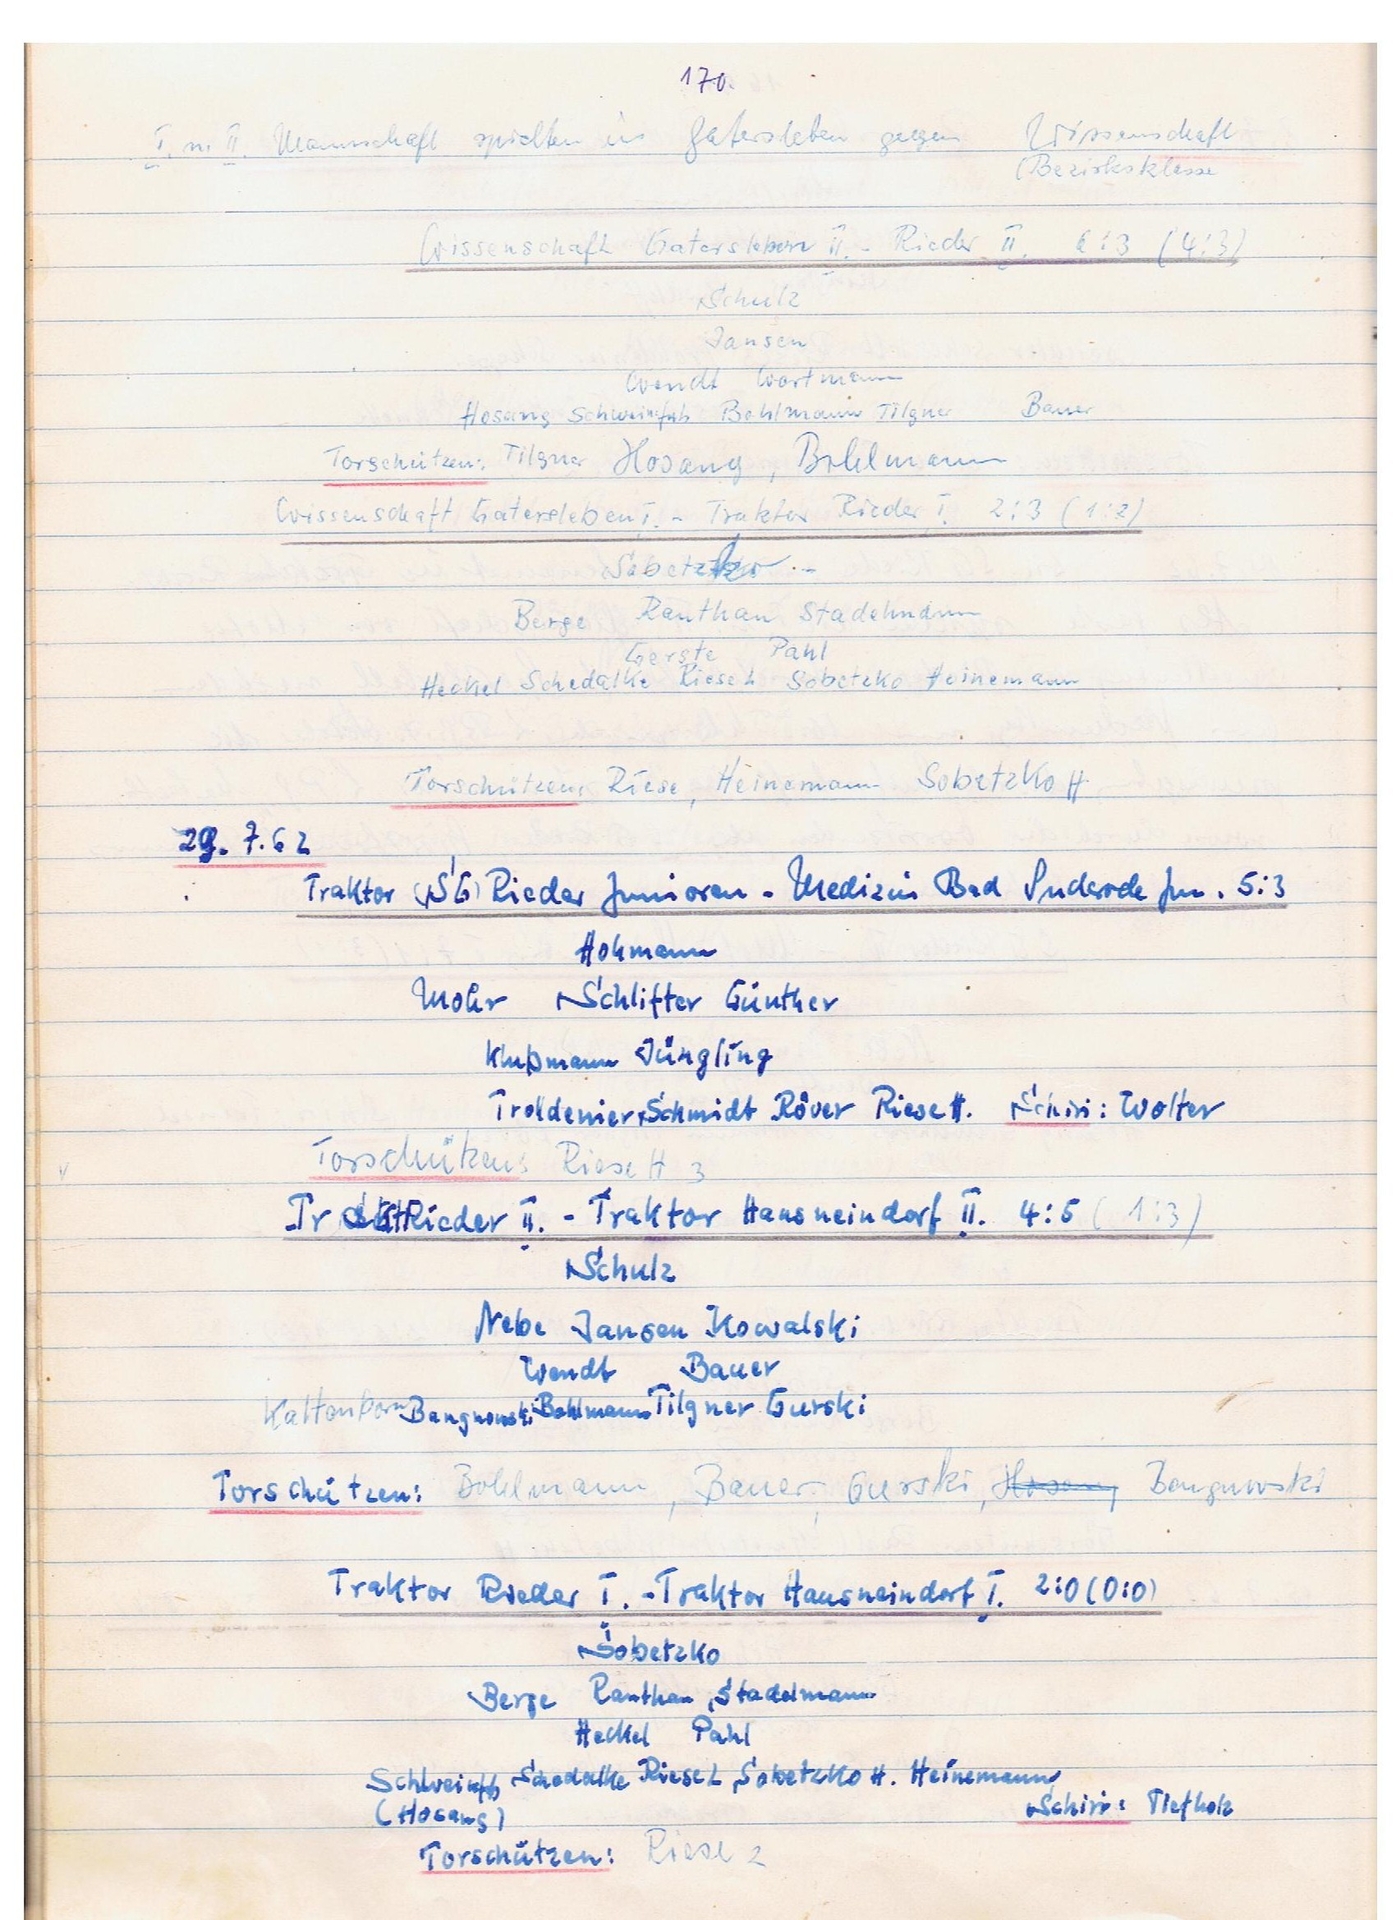 170.
I. u. II. Mannschaft spielten in Gatersleben gegen Wissenschaft
(Bezirksklasse
Wissenschaft Gatersleben II. - Rieder II. 6:3 (4:3)
Schulz
Jansen
Wendt Wortmann
Hosang Schweinfuß Bohlmann Tilgner Bauer
Torschützen: Tilgner Hosang, Bohlmann
Wissenschaft Gatersleben I. - Traktor Rieder I. 2:3 (1:2)
Sobetzko
Berge Ranthan Stadelmann
Gerste Pahl
Heckel Schedalke Riese L Sobetzko Heinemann
Torschützen: Riese, Heinemann Sobetzko H.
29. 7.62
Traktor (SG) Rieder Junioren - Medizin Bad Suderode Jun. 5:3
Hohmann
Mohr Schlifter Günther
Klußmann Jüngling
Troldenier Schmidt Röver Riese H. Schiri: Wolter
Torschützen: Riese H 3
Tr Rieder II. - Traktor Hausneindorf II. 4:5 (1:3)
Schulz
Nebe Jansen Kowalski
Wendt Bauer
Kaltenborn Bangnowski Bohlmann Tilgner Gurski
Torschützen: Bohlmann, Bauer, Gurski, Bangnowski
Traktor Rieder I. - Traktor Hausneindorf I. 2:0 (0:0)
Sobetzko
Berge Ranthan Stadelmann
Heckel Pahl
Schweinfuß Schedalke Riese L Sobetzko H. Heinemann
(Hosang) Schiri: Tiefholz
Torschützen: Riese 2